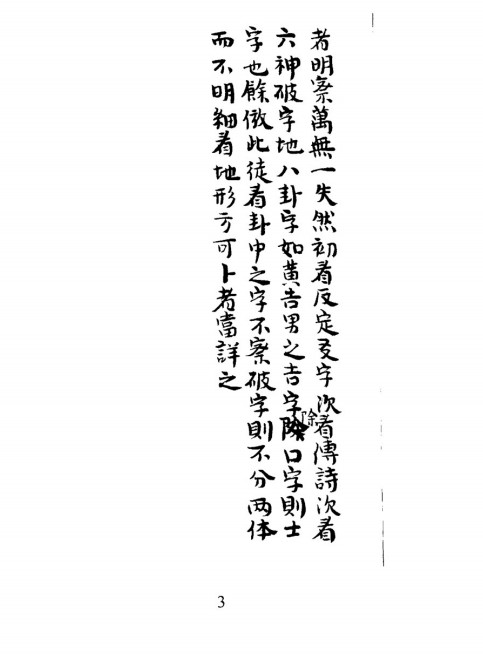 者明察萬無一失然初看反定爻字次看傳詩次看
六神破字地八卦字如黃吉男之吉字除口字則士
字也餘倣此徒看卦中之字不察破字則不分两体
而不明細看地形方可卜者當詳之
3